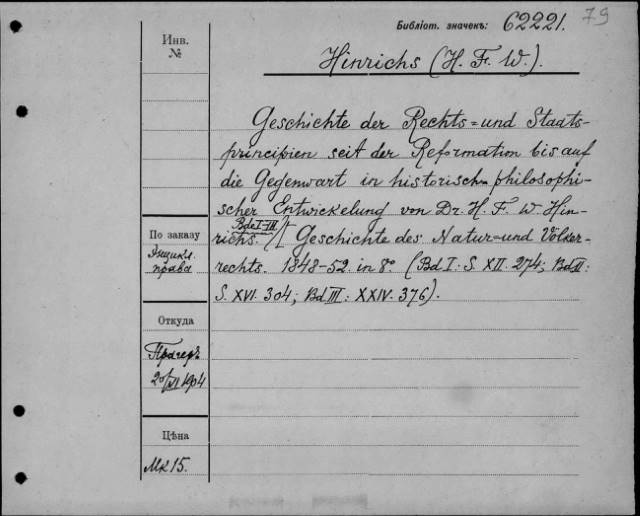 Библіот. значекъ: 62221. 79
Инв.
№
Hinrichs (H. F. W.).
Geschichte der Rechts-und Staats-
principien seit der Reformation bis auf
die Gegenwart in historisch-philosophi-
scher Entwickelung von Dr. H. F. W. Hin-
Bde I-III.
richs. // Geschichte des Natur-und Völker-
rechts. 1848-52. in 8° (Bd I: S. XII. 274; Bd II:
S. XVI. 304; Bd III: XXIV. 376).
По заказу
Энцикл.
права
Откуда
Прагеръ
20/VI 1904
Цѣна
Мк 15.